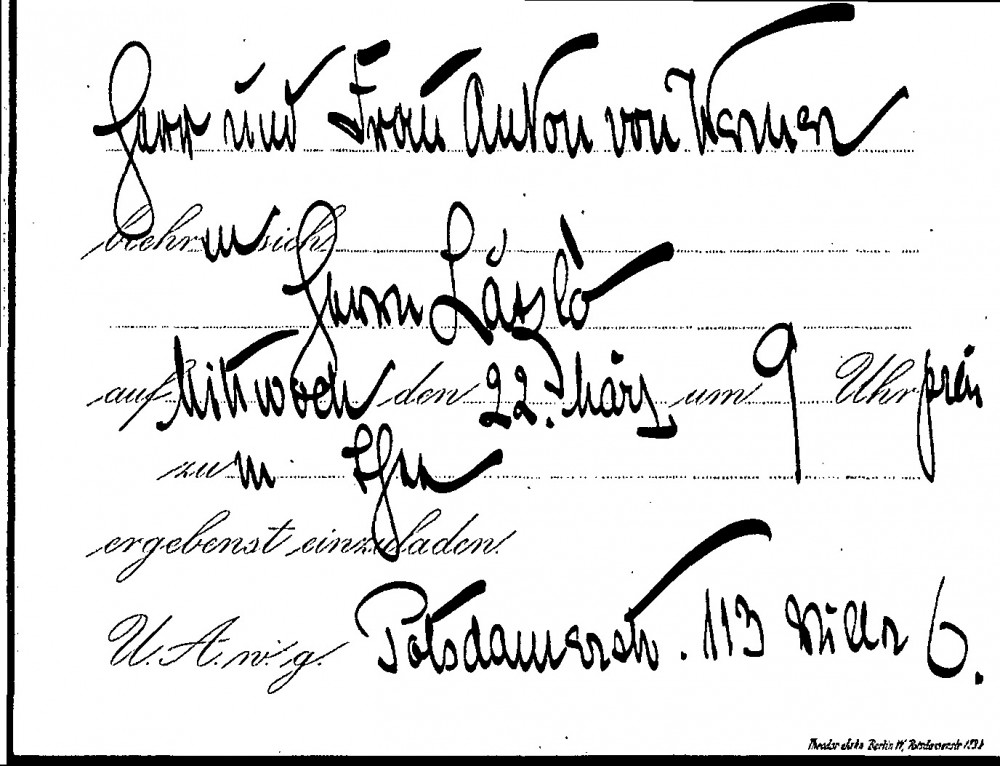 Herr und Frau Anton von Werner
beehren sich
Herrn László
auf Mittwoch den 22. März um 9 Uhr präs
zum Thee
ergebenst einzuladen.
U. A. w. g. Potsdamerstr. 113 Villa 6.
Berlin W, Potsdamerstr